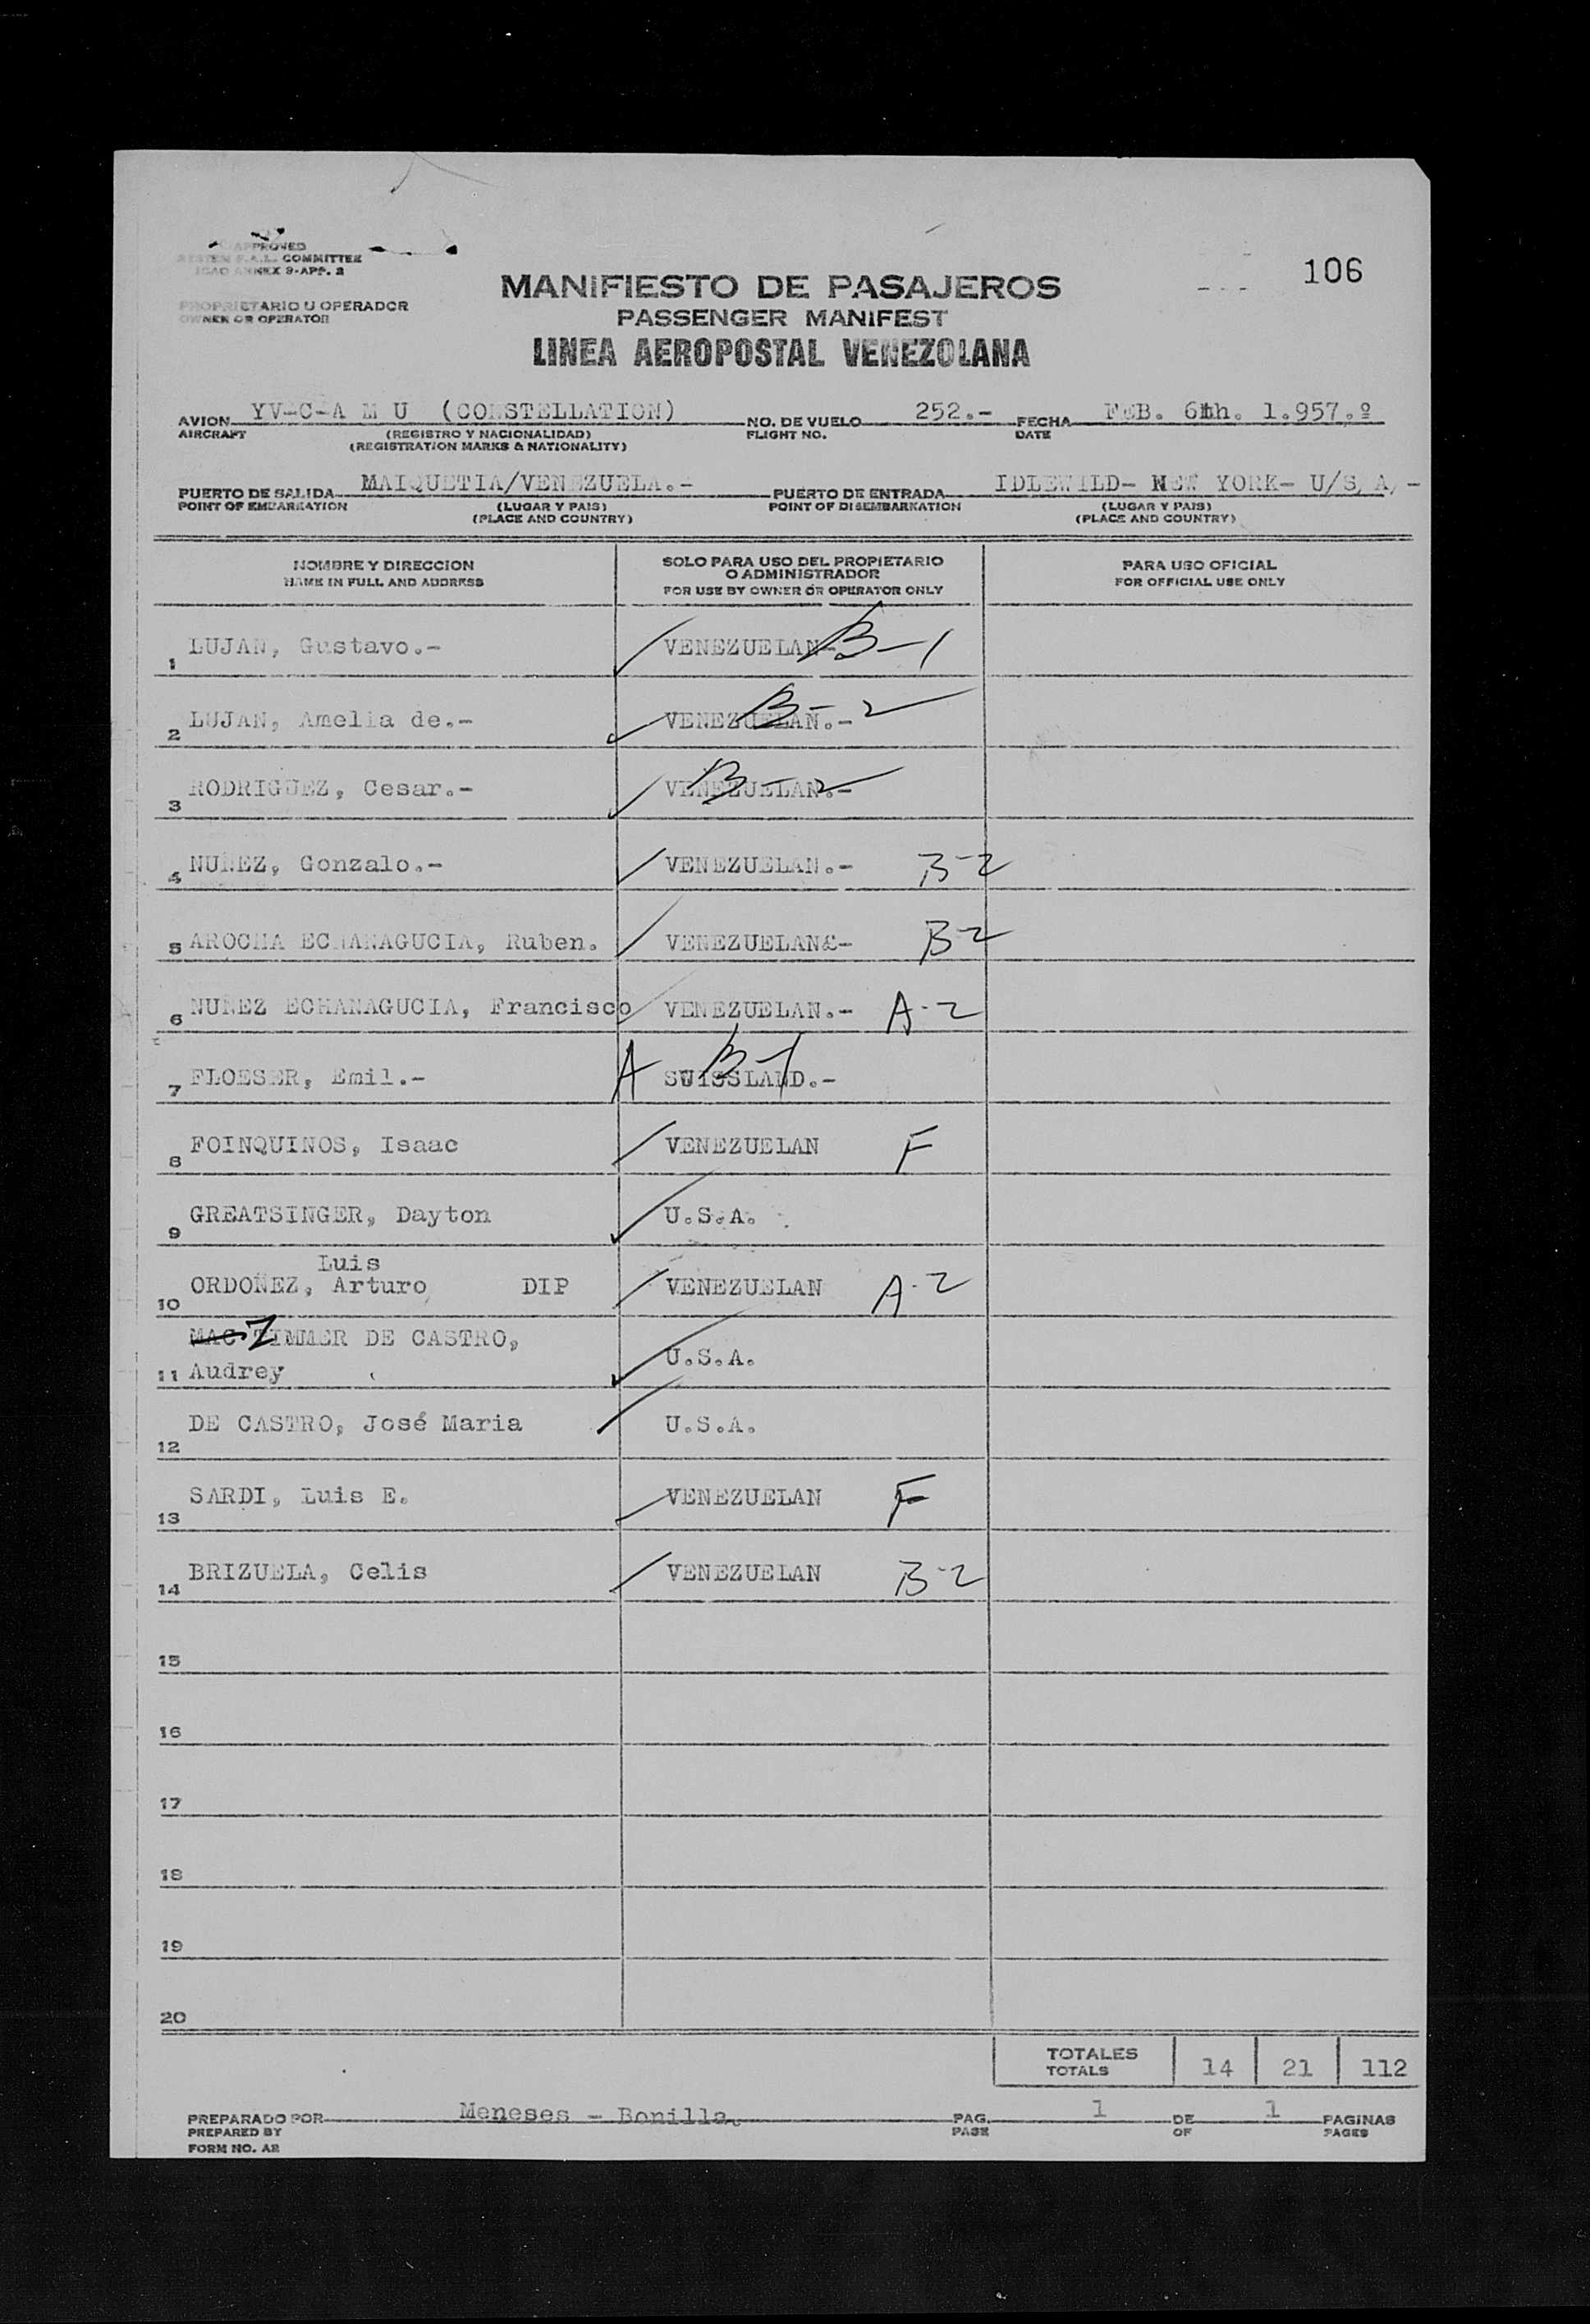 APPROVED
SYSTEM F.A.L. COMMITTEE
ICAO ANNEX 9-APP. 2
106
MANIFIESTO DE PASAJEROS
PROPRIETARIO U OPERADOR
OWNER OR OPERATOR
PASSENGER MANIFEST
LINEA AEROPOSTAL VENEZOLANA
AVION YV-C-A M U (CONSTELLATION) NO. DE VUELO 252.- FECHA FEB. 6th. 1.957.º
AIRCRAFT (REGISTRO Y NACIONALIDAD) FLIGHT NO. DATE
(REGISTRATION MARKS & NATIONALITY)
PUERTO DE SALIDA MAIQUETIA/VENEZUELA.- PUERTO DE ENTRADA IDLEWILD- NEW YORK- U/S, A,-
POINT OF EMBARKATION (LUGAR Y PAIS) POINT OF DISEMBARKATION (LUGAR Y PAIS)
(PLACE AND COUNTRY) (PLACE AND COUNTRY)
NOMBRE Y DIRECCION SOLO PARA USO DEL PROPIETARIO O ADMINISTRADOR PARA USO OFICIAL
NAME IN FULL AND ADDRESS FOR USE BY OWNER OR OPERATOR ONLY FOR OFFICIAL USE ONLY
1 LUJAN, Gustavo.- VENEZUELAN- B-1
2 LUJAN, Amelia de.- VENEZUELAN.- B-2
3 RODRIGUEZ, Cesar.- VENEZUELAN.- B-2
4 NUÑEZ, Gonzalo.- VENEZUELAN.- B-2
5 AROCHA ECHANAGUCIA, Ruben. VENEZUELAN- B-2
6 NUÑEZ ECHANAGUCIA, Francisco VENEZUELAN.- A-2
7 FLOESER, Emil.- A SWISSLAND.- B-1
8 FOINQUINOS, Isaac VENEZUELAN F
9 GREATSINGER, Dayton U.S.A.
Luis
10 ORDOÑEZ, Arturo DIP VENEZUELAN A-2
MAC ZIMMER DE CASTRO,
11 Audrey U.S.A.
12 DE CASTRO, José Maria U.S.A.
13 SARDI, Luis E. VENEZUELAN F
14 BRIZUELA, Celis VENEZUELAN B-2
15
16
17
18
19
20
TOTALES 14 21 112
TOTALS
PREPARADO POR Meneses - Bonilla. PAG. 1 DE 1 PAGINAS
PREPARED BY PAGE OF PAGES
FORM NO. AR